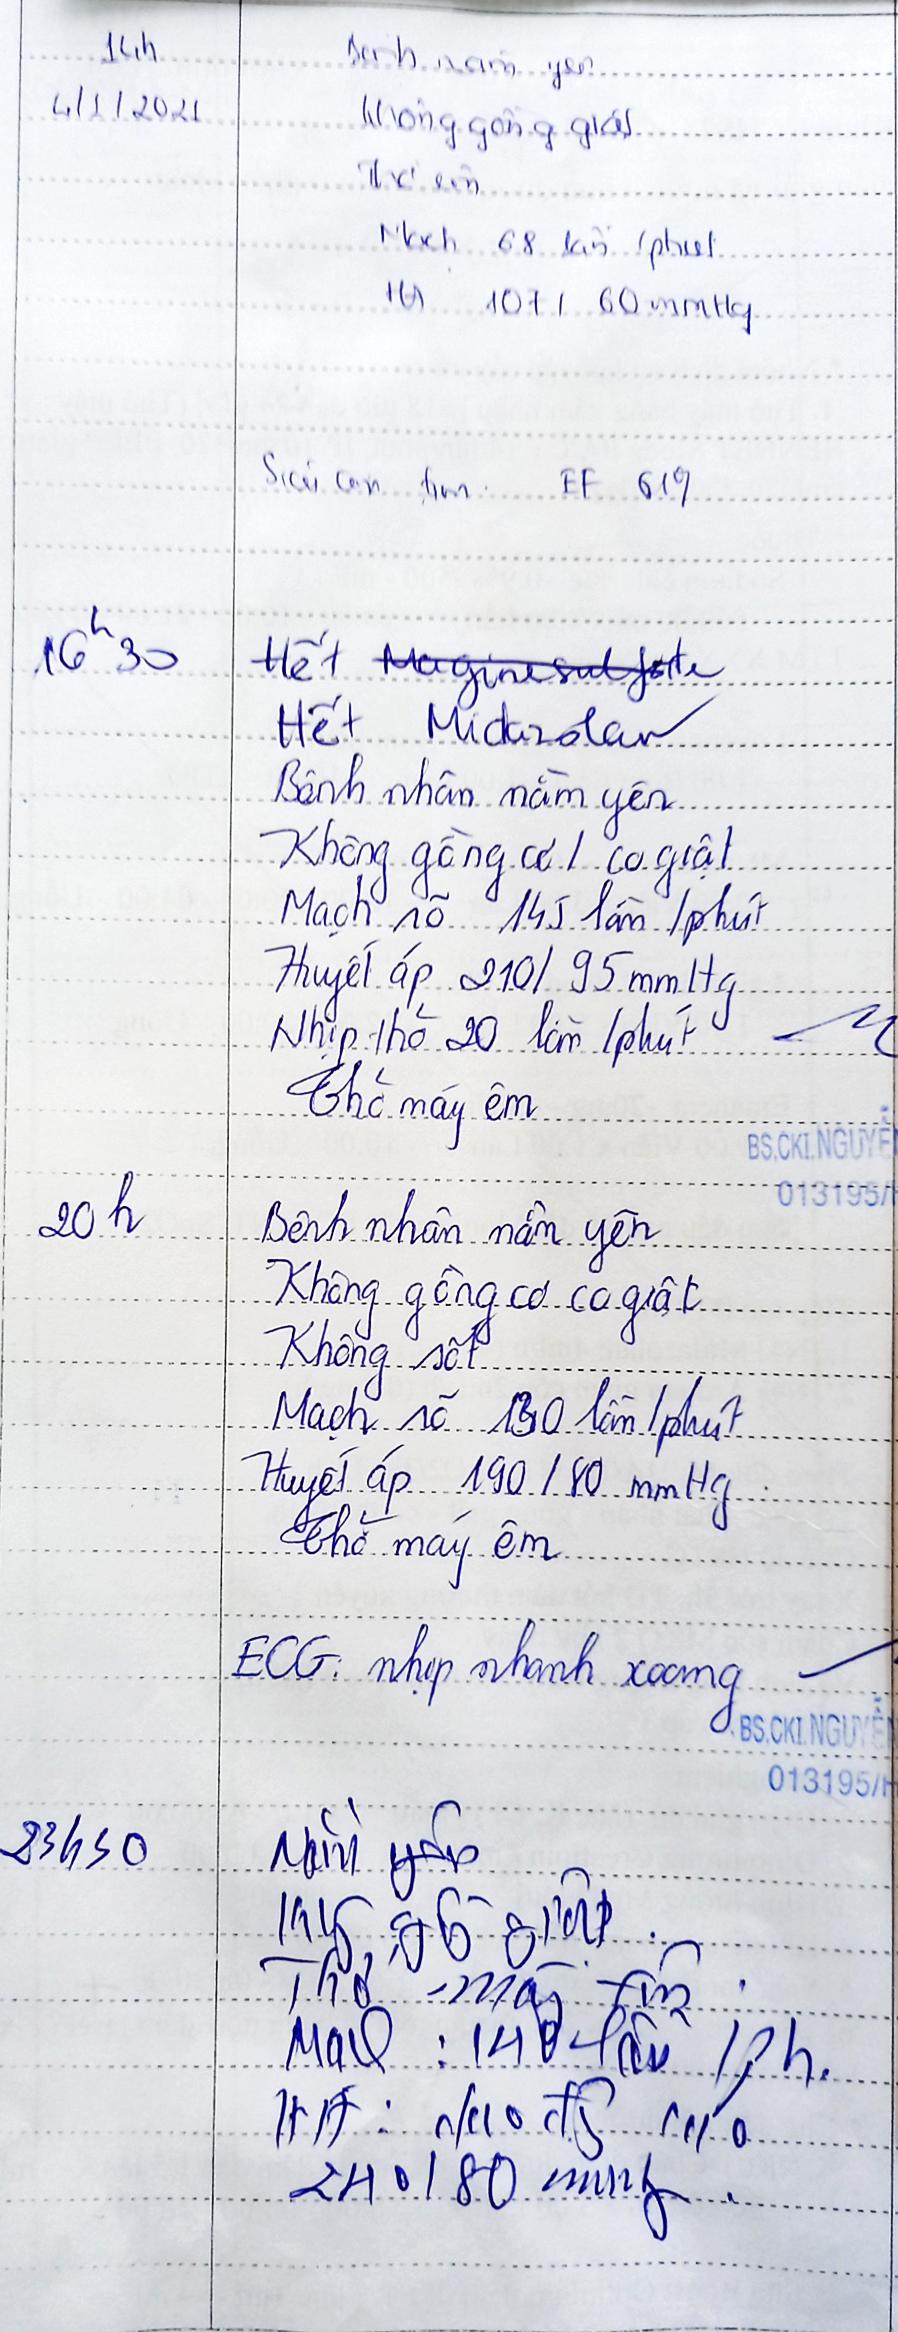 14h
4/1/2021
Bệnh nằm yên
Không gồng giật
Thở êm
Mạch 68 lần /phút
HA 107/ 60 mmHg
Siêu âm tim: EF 61%
16h30
Hết Maginesulfate
Hết Midazolam
Bệnh nhân nằm yên
Không gồng cơ / co giật
Mạch rõ 145 lần /phút
Huyết áp 210/ 95 mmHg
Nhịp thở 20 lần /phút
Thở máy êm
BS.CKI.NGUYỄN
013195/H
20h
Bệnh nhân nằm yên
Không gồng cơ co giật
Không sốt
Mạch rõ 130 lần /phút
Huyết áp 190 / 80 mmHg
Thở máy êm
ECG: nhịp nhanh xoang
BS.CKI.NGUYỄN
013195/H
23h30
Nằm yên
giật.
Thở máy
Mạch : 140 lần /ph.
HA : dao động
240/80 mmHg.